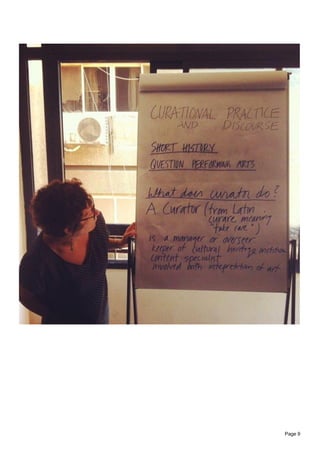 CURATIONAL PRACTICE
AND DISCOURSE
SHORT HISTORY
QUESTION PERFORMING ARTS
What does curator do?
A Curator (from Latin:
curare meaning
"take care")
is a manager or overseer
keeper of cultural heritage institution
content specialist
involved with interpretation of art
Page 8